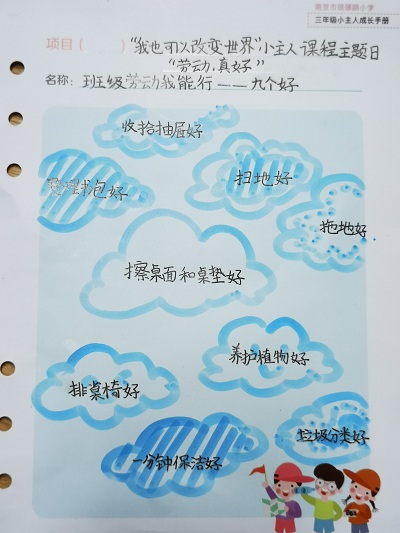 三年级小主人成长手册
项目( ) “我也可以改变世界”小主人课程主题日
“劳动,真好”
名称: 班级劳动我能行——九个好
收拾抽屉好
整理书包好
扫地好
拖地好
擦桌面和桌垫好
养护植物好
排桌椅好
垃圾分类好
一分钟保洁好